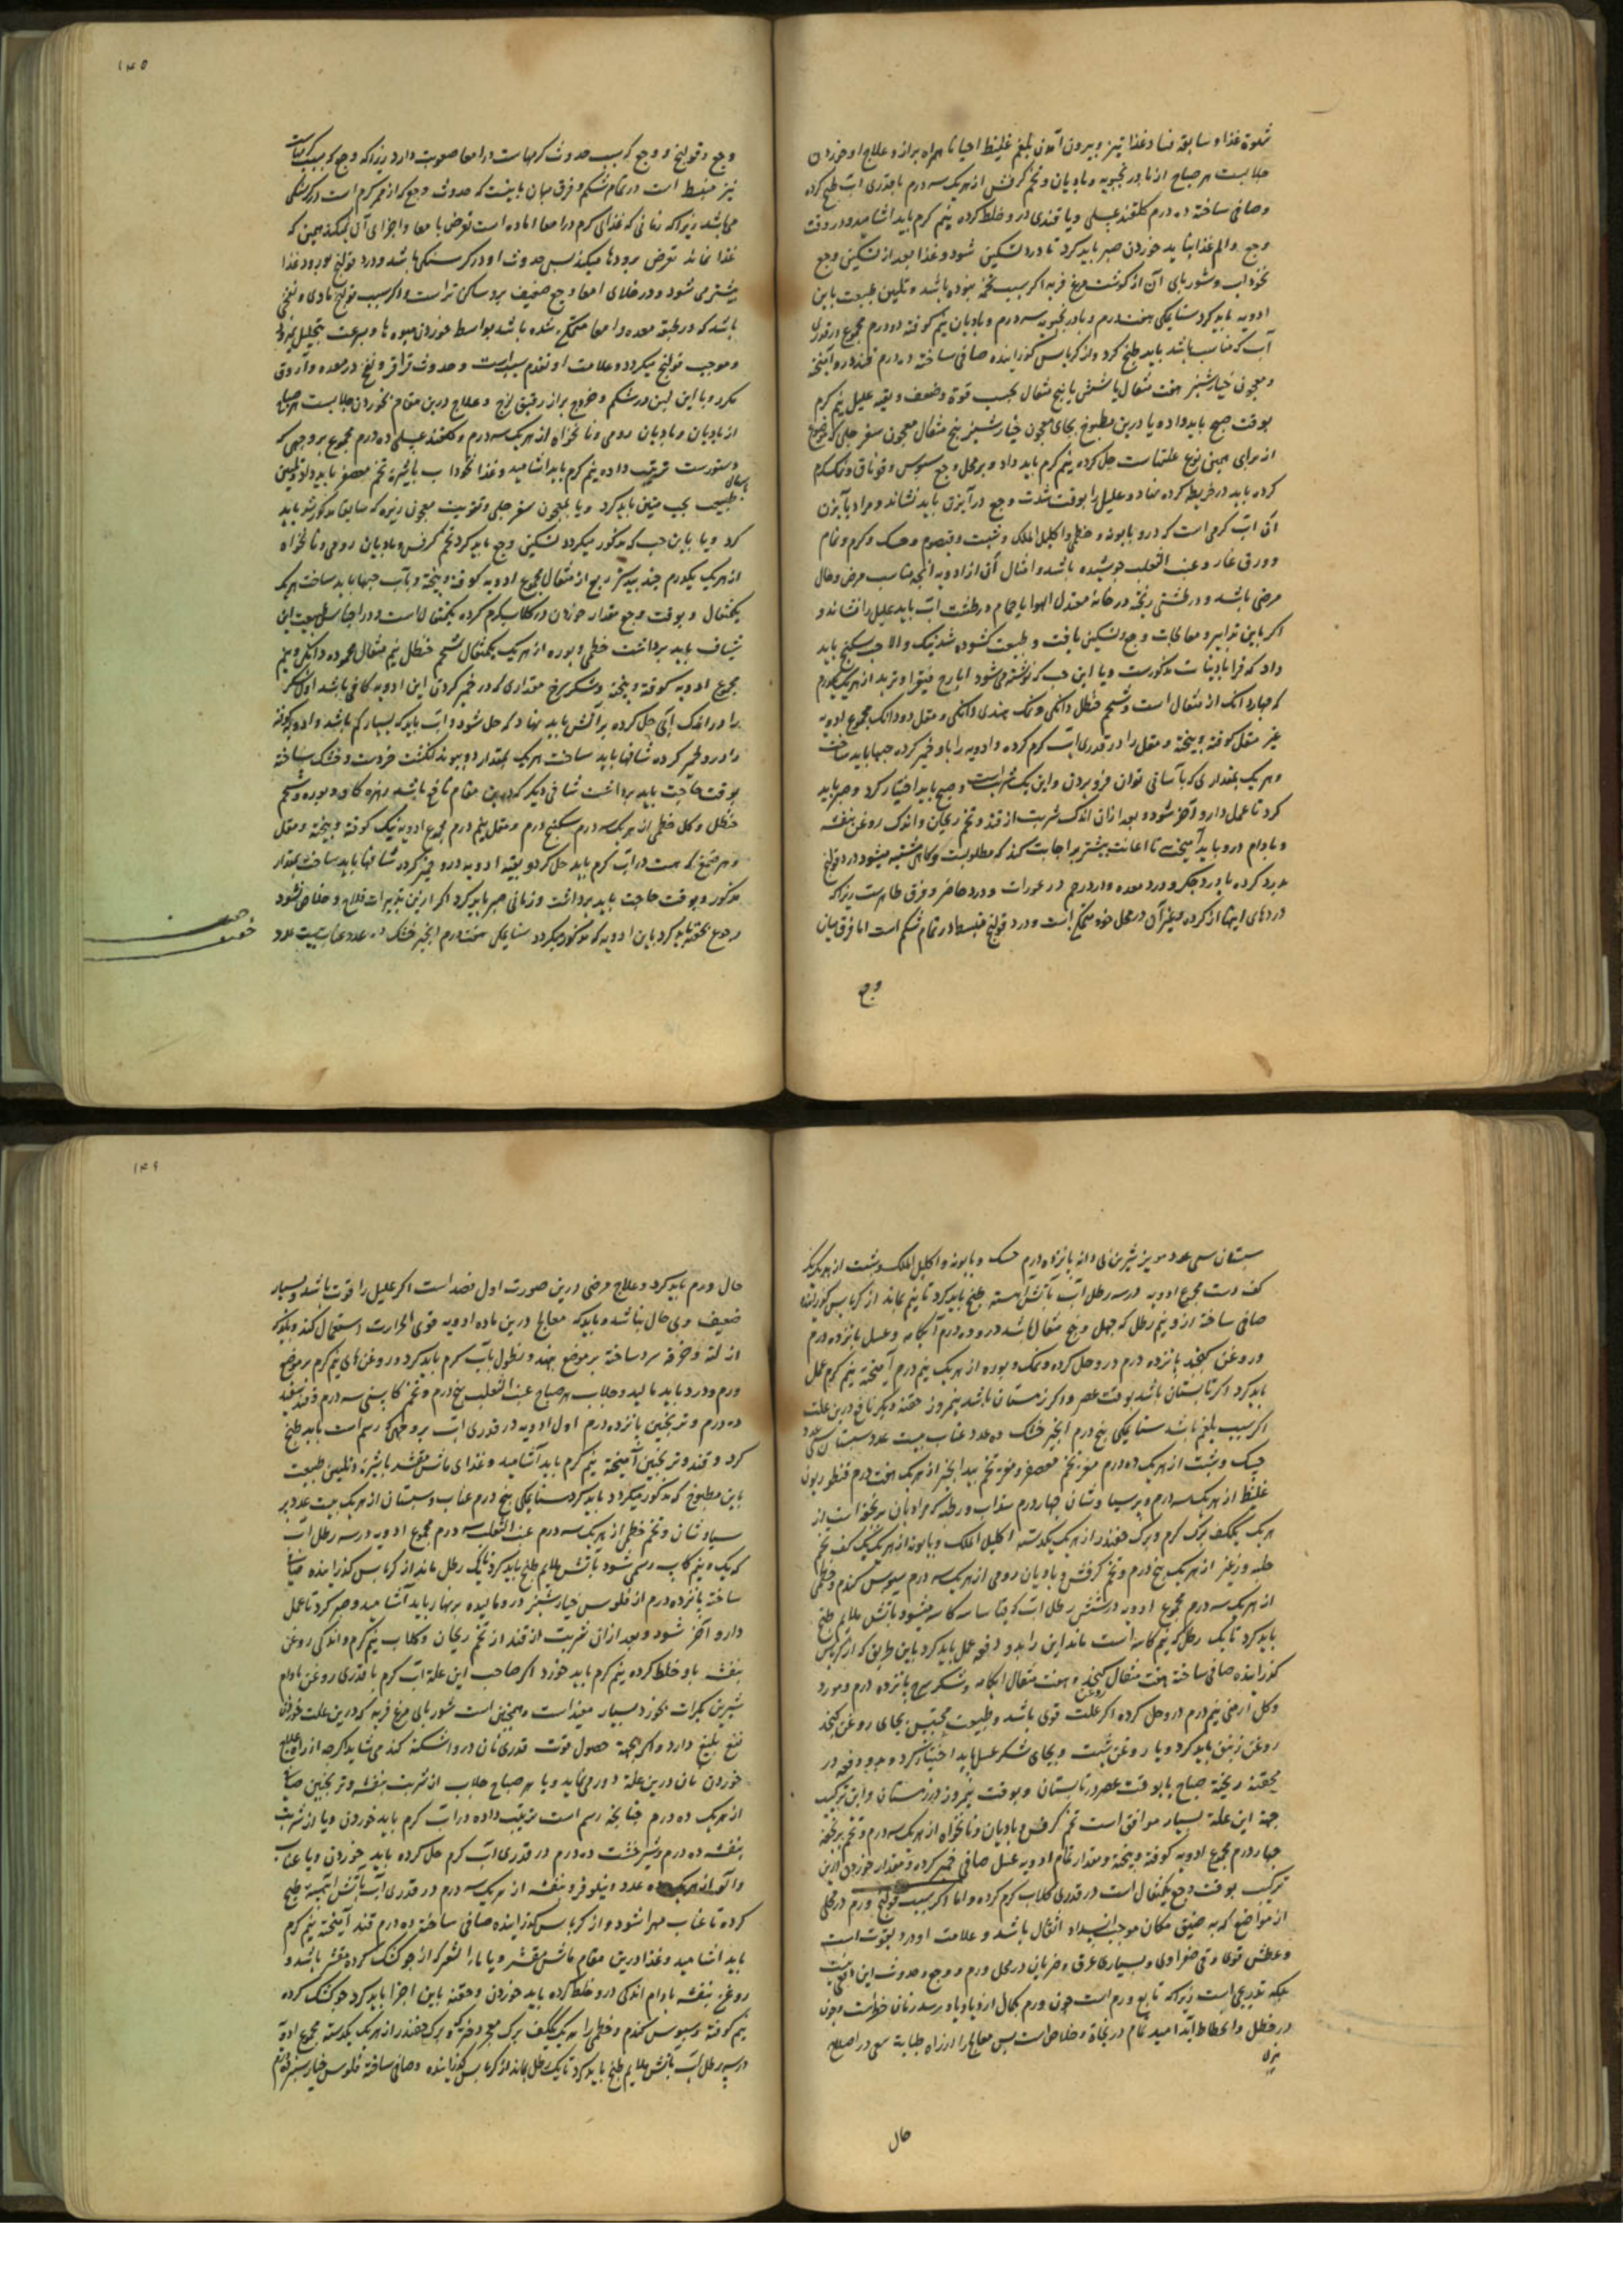 شهوة غذا و سابقه فساد غذا نیز و بیرون آمدن بلغم غلیظ احیانا همراه براز و علاج او خوردن
جلابست هر صباح از بادرنجبویه و بادیان و تخم کرفس از هریک سه درم با قدری آب طبخ کرده
و صافی ساخته ده درم کلقند عسلی و یا قندی درو خلط کرده نیم کرم باید آشامید و در وقت
وجع و الم غذا نباید خوردن صبر باید کرد تا درد تسکین شود و غذا بعد از تسکین وجع
نخوداب و شوربای آن از کوشت مرغ فربه اکر سبب تخمه نبوده باشد و تلیین طبیعت باین
ادویه باید کرد سنا مکی هفت درم و بادرنجبویه سه درم و بادیان نیم کوفته دو درم مجموع در قدری
آب که مناسب باشد باید طبخ کرد و از کرباس کذرانیده صافی ساخته ده درم قند درو آمیخته
و معجون خیارشنبر هفت مثقال یا شش یا پنج مثقال بحسب قوة و ضعف و بقیه علیل نیم کرم
بوقت صبح باید داد و یا درین مطبوخ بجای معجون خیارشنبر پنج مثقال معجون سفرجلی که موضوع
از برای همین نوع علتهاست حل کرده نیم کرم باید داد و بر محل وجع سبوس و نمک کرم
کرده باید در خریطه کرده نهاد و علیل را بوقت شدت وجع در آبزن باید نشاند و مراد بآبزن
آن آب کرمی است که درو بابونه و خطمی و اکلیل الملک و شبت و قیصوم و حسک و کرم و نمام
و ورق غار و عنب الثعلب جوشیده باشد و امثال آن از ادویه آنچه مناسب مرض و حال
مرض باشد و در طشتی ریخته در خانهٔ معتدل الهوا یا حمام و در طشت آب باید علیل را نشاند و
اکر باین تدابیر و معالجات وجع تسکین یافت و طبیعت کشوده شد نیک و الا حب سکبینج باید
داد که در قرابادینات مذکورست و یا این حب که نوشته می شود ایارج فیقرا و تربد از هریک یکدرم
که چهار دانک از مثقال است و شحم حنظل دانکی و نمک هندی دانکی و مقل دو دانک مجموع ادویه
غیر مقل کوفته و بیخته و مقل را در قدری آب کرم کرده و ادویه را باو خمیر کرده حبها باید ساخت
و هریک بمقداری که بآسانی توان فرو بردن و این یک شربت است و صبح باید اختیار کرد و صبر باید
کرد تا عمل دارو آخر شود و بعد از آن اندک شربت از قند و تخم ریحان و اندک روغن بنفشه
و بادام درو باید آمیخت تا اعانت بیشتر بر اجابت کند که مطلوبست و کاهی مشتبه میشود درد قولنج
بدرد کرده یا بدرد جکر و درد معده و درد رحم در عورات و درد خاصر و فرق ظاهرست زیرا که
دردهای اینها از کرده و غیر آن در محل خود متمکن است و درد قولنج منبسط در تمام شکم است اما فرق میان
وجع
۱۴۵
وجع قولنج و وجع که سبب حدوث کرمهاست در امعا صعوبت دارد زیرا که وجع که بسبب کرمهاست
نیز منبسط است در تمام شکم و فرق میان باینست که حدوث وجع که از کرم است در کرسنکی
می باشد زیرا که زمانی که غذای کرم در امعا آماده است تعرض بامعا و اجزای آن نمیکند همین که
غذا نماند تعرض برودها میکند پس حدوث او در کرسنکی باشد و درد قولنج بوجود غذا
بیشتر می شود و در خلای امعا وجع ضعیف بر و ساکن تر است و اکر سبب قولنج بادی و نفخی
باشد که در طبقه معده و امعا متمکن شده باشد بواسطه خوردن میوه ها و بسرعت تحلیل نپذیرد
و موجب قولنج میکردد و علامت او تقدم سبب است و حدوث قراقر و نفخ در معده و آروق
مکرر و با این لین در شکم و خروج براز رقیق لزج و علاج درین مقام خوردن جلابست هر صباح
از بادیان و بادیان رومی و نانخواه از هریک سه درم و کلقند عسلی ده درم مجموع بر وجهی که
دستورست ترتیب داده نیم کرم باید آشامید و غذا نخوداب بالشیره تخم معصفر باید داد و تلیین
طبیعت بحب متین باید کرد و یا بمعجون سفرجلی و تقویت معجون زیره که سابقا مذکور شد باید
کرد و یا باین حب که مذکور میکردد تسکین وجع باید کرد تخم کرفس و بادیان رومی و نانخواه
از هریک یکدرم جند بیدستر ربع از مثقال مجموع ادویه کوفته و بیخته و بآب حبها باید ساخت هریک
یکمثقال و بوقت وجع مقدار خوردن در کلاب کرم کرده یکمثقال است و در احتباس طبیعت این
شیاف باید برداشت خطمی و بوره از هریک یکمثقال شحم حنظل نیم مثقال محموده دانکی و نیم
مجموع ادویه کوفته و بیخته و شکر سرخ مقداری که در خمیر کردن این ادویه کافی باشد اول شکر
را در اندک آبی حل کرده بر آتش باید نهاد که حل شود و آب باید که بسیار کم باشد و ادویه کوفته
را درو خمیر کرده شافها باید ساخت هریک بمقدار دو بند انکشت خردست و خشک ساخته
بوقت حاجت باید برداشت شافی دیکر که درین مقام نافع باشد زهره کاو و بوره و شحم
حنظل و کل خطمی از هریک سه درم سکبینج درم و مقل نیم درم مجموع ادویه نیک کوفته و بیخته و مقل
و هر صمغی که هست در آب کرم باید حل کرد و بقیه ادویه درو خمیر کرده شافها باید ساخت بمقدار
مذکور و بوقت حاجت باید برداشت و زمانی صبر باید کرد اکر ازین تدبیرات فلاح و خلاص نشود
رجوع بحقنه باید کرد باین ادویه که مذکور میکردد سنا مکی هفت درم انجیر خشک ده عدد عناب بیست عدد
سپستان سی عدد مویز شیرین بی دانه پانزده درم حسک و بابونه و اکلیل الملک و شبت از هریک یک
کف دست مجموع ادویه در سه رطل آب بآتش آهسته طبخ باید کرد تا نیم بماند از کرباس کذرانیده
صافی ساخته ازو نیم رطل که چهل و پنج مثقال باشد درو ده درم آبکامه و عسل پانزده درم
و روغن کنجد پانزده درم درو حل کرده و نمک و بوره از هریک نیم درم آمیخته نیم کرم عمل
باید کرد اکر تابستان باشد بوقت عصر و اکر زمستان باشد نیمروز حقنه دیکر نافع درین علت
اکر سبب بلغم باشد سنا مکی پنج درم انجیر خشک ده عدد عناب بیست عدد سپستان سی عدد
حسک و شبت از هریک ده درم مغز تخم معصفر و مغز تخم بیدانجیر از هریک هفت درم قنطوریون
غلیظ از هریک سه درم و پرسیاوشان چهار درم سداب و رطبه که مراد بان برنجفواست از
هریک یککف برک کرم و برک چغندر از هریک یکدسته اکلیل الملک و بابونه از هریک یک کف تخم
حلبه و زیغیر از هریک پنج درم و تخم کرفس و بادیان رومی از هریک سه درم سبوس کندم و خطمی
از هریک سه درم مجموع ادویه در شش رطل آب که بتاسا سه کاسه میشود بآتش ملایم طبخ
باید کرد تا یک رطل که نیم کاسه است ماند این را بدو دفعه عمل باید کرد باین طریق که از کرباس
کذرانیده صافی ساخته هفت مثقال روغن کنجد و هفت مثقال آبکامه و شکر سرخ پانزده درم و مورد
و کل ارمنی نیم درم درو حل کرده اکر علت قوی باشد و طبیعت محتبس بجای روغن کنجد
روغن زنبق باید کرد و یا روغن شبت و بجای شکر عسل باید اختیار کرد و بدو دفعه در
محقنه ریخته صباح یا بوقت عصر در تابستان و بوقت نیمروز در زمستان و این ترکیب
جهة این علة بسیار موافق است تخم کرفس و بادیان و نانخواه از هریک سه درم و تخم برنجفه
چهار درم مجموع ادویه کوفته و بیخته و مقدار تمام ادویه عسل صافی خمیر کرده و مقدار خوردن ازین
ترکیب بوقت وجع یکمثقال است در قدری کلاب کرم کرده و اما اکر سبب قولنج ورم در محلی
از مواضع که به ضیق مکان موجب انسداد اثقال باشد و علامت او درد بقوت است
و عطش قوی و قی صفراوی و بسیاری عرق و ضربان در محل ورم و وجع و حدوث این دفعی نیست
بلکه تدریجی است زیرا که تابع ورم است چون ورم بکمال ازدیاد باو برسد زمان خطر است و چون
در خطل و انحطاط آید امید تمام در نجاة و خلاص است پس معالج را از راه طبابة سعی در اصلاح
حال
۱۴۶
حال ورم باید کرد و علاج مرضی درین صورت اول فصد است اکر علیل را قوت باشد و بسیار
ضعیف و بی حال نباشد و باید که معالج درین ماده ادویه قوی الحرارت استعمال نکند و بلکه
از لته و خرقه سرد ساخته بر موضع نهند و نطول بآب کرم باید کرد و روغن های نیم کرم بر موضع
ورم و درد باید مالید و جلاب هر صباح عنب الثعلب پنج درم و تخم کاسنی سه درم و قند سفید
ده درم و ترنجبین پانزده درم اول ادویه در قدری آب بر وجهی که رسم است باید طبخ
کرد و قند و ترنجبین آمیخته نیم کرم باید آشامید و غذا ماش مقشر بالشیره و تلیین طبیعت
باین مطبوخ که مذکور میکردد باید کرد سنا مکی پنج درم عناب و سپستان از هریک بیست عدد پر
سیاوشان و تخم خطمی از هریک سه درم عنب الثعلب سه درم مجموع ادویه در سه رطل آب
که یک و نیم کاسه رسمی شود بآتش ملایم طبخ باید کرد تا یک رطل ماند از کرباس کذرانیده صاف
ساخته پانزده درم از فلوس خیارشنبر درو مالیده بر نهار باید آشامید و صبر کرد تا عمل
دارو آخر شود و بعد از آن شربت از قند از تخم ریحان و کلاب نیم کرم و اندکی روغن
بنفشه باو خلط کرده نیم کرم باید خورد اکر صاحب این علة آب کرم با قدری روغن بادام
شیرین بکرات بخورد بسیار مفید است و همچنین است شوربای مرغ فربه که درین علت خوردن
نفع بلیغ دارد و اکر بجهة حصول قوت قدری نان درو اشکنه کند می شاید اکرچه از راه علاج
خوردن نان درین علة دور می نماید و یا هر صباح جلاب از شربت بنفشه و ترنجبین صاف
از هریک ده درم چنانچه رسم است ترتیب داده در آب کرم باید خوردن و یا از شربت
بنفشه ده درم و شیرخشت ده درم در قدری آب کرم حل کرده باید خوردن و یا عناب
و آلو از هریک ده عدد و نیلوفر و بنفشه از هریک سه درم در قدری آب بآتش آهسته طبخ
کرده تا عناب مهرا شود و از کرباس کذرانیده صافی ساخته ده درم قند آمیخته نیم کرم
باید آشامید و غذا درین مقام ماش مقشر و یا ماءالشعر که از جو کشک کرده مقشر باشد و
روغن بنفشه بادام اندکی درو خلط کرده باید خوردن و حقنه باین اجزا باید کرد جو کشک کرده
نیم کوفته و سبوس کندم و خطمی از هریک یککف برک و برک چغندر از هریک یکدسته مجموع ادویه
در سه رطل آب بآتش ملایم طبخ باید کرد تا یک رطل بماند از کرباس کذرانیده و صافی ساخته فلوس خیارشنبر